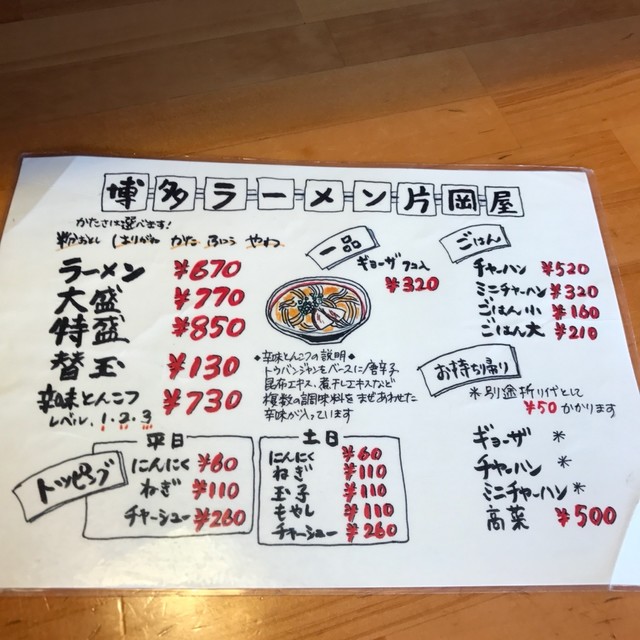 博多ラーメン片岡屋
かたさは選べます!
粉おとし はりがね かた ふつう やわ
ラーメン ¥670
大盛 ¥770
特盛 ¥850
替玉 ¥130
辛味とんこつ ¥730
レベル、1.2.3
一品
ギョーザ 7コ入
¥320
◆辛味とんこつの説明◆
トウバンジャンをベースに/唐辛子
昆布エキス、煮干しエキスなど
複数の調味料をまぜあわせた
辛味が入っています
ごはん
チャーハン ¥520
ミニチャーハン ¥320
ごはん小 ¥160
ごはん大 ¥210
お持ち帰り
※別途折り代として
¥50かかります
ギョーザ ※
チャーハン ※
ミニチャーハン ※
高菜 ¥500
トッピング
平日
にんにく ¥60
ねぎ ¥110
チャーシュー ¥260
土日
にんにく ¥60
ねぎ ¥110
玉子 ¥110
もやし ¥110
チャーシュー ¥260